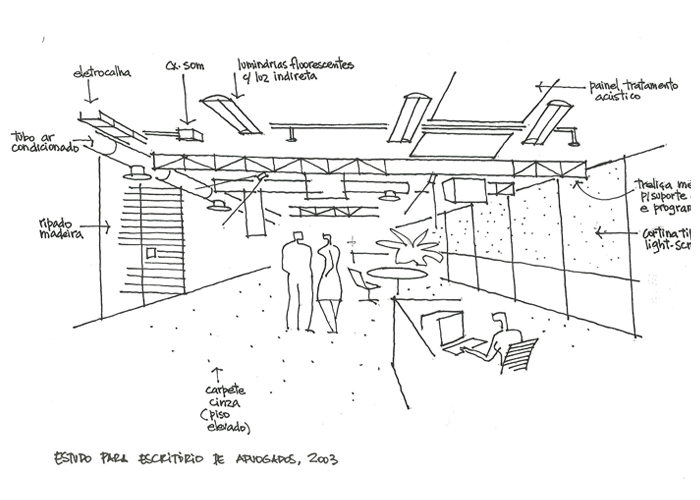 eletrocalha
cx. som
luminárias fluorescentes
c/ luz indireta
painel tratamento
acústico
tubo ar
condicionado
treliça
p/suporte
e
cortina
light-
ripado
madeira
carpete
cinza
(piso
elevado)
ESTUDO PARA ESCRITÓRIO DE ADVOGADOS, 2003